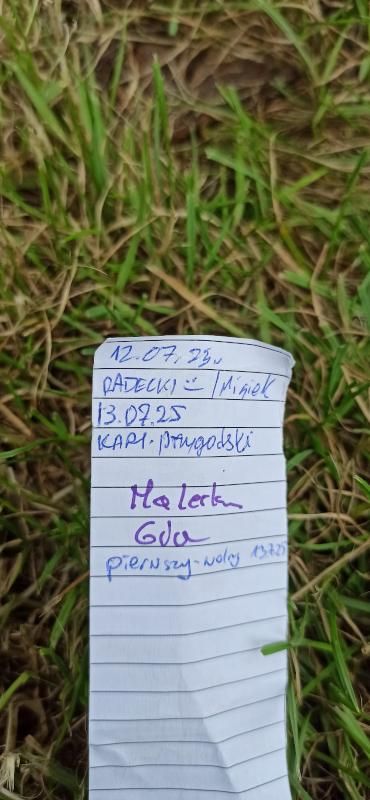 12.07.25r
RADECKI :) / Misiek
13.07.25
KAPI-przygodski
Gda
pierwszy-wolny 13.7.25